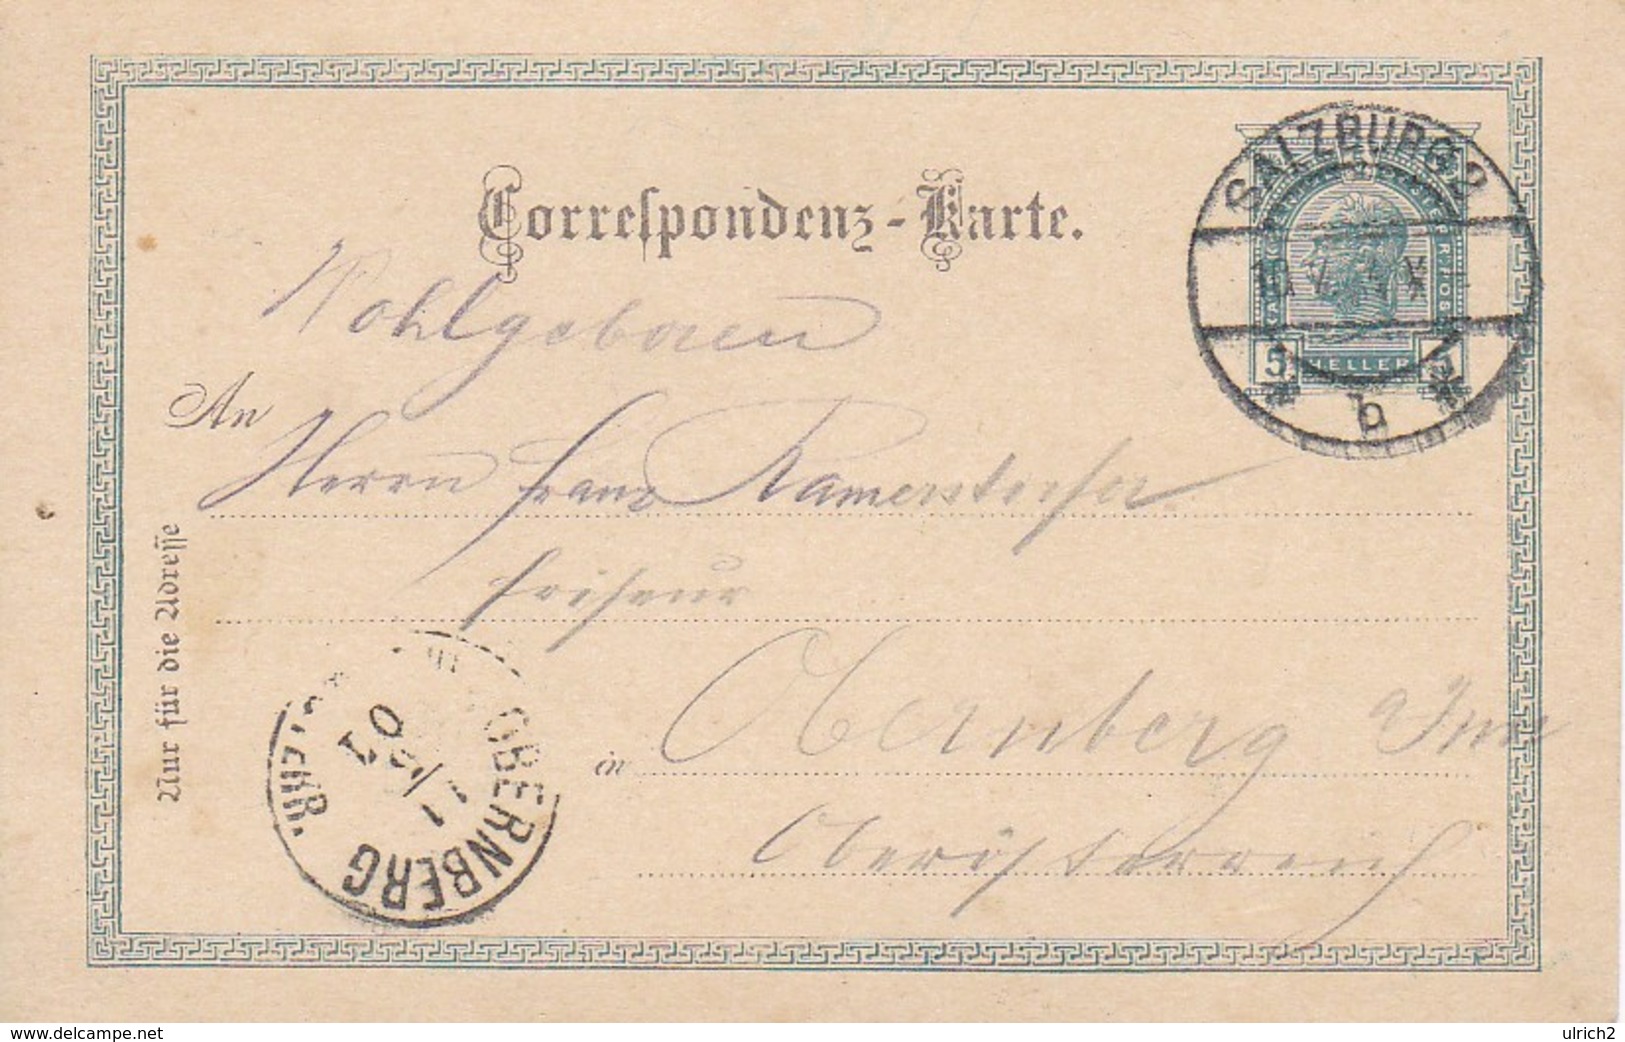 Correspondenz-Karte.
SALZBURG 2
KAIS. KÖN. OESTERR. POST
5 HELLER 5
b
Wohlgeboren
An
Herrn Franz
Friseur
in Obernberg Inn
Oberösterreich
Nur für die Adresse
OBERNBERG
11/5
01
www.delcampe.net
ulrich2